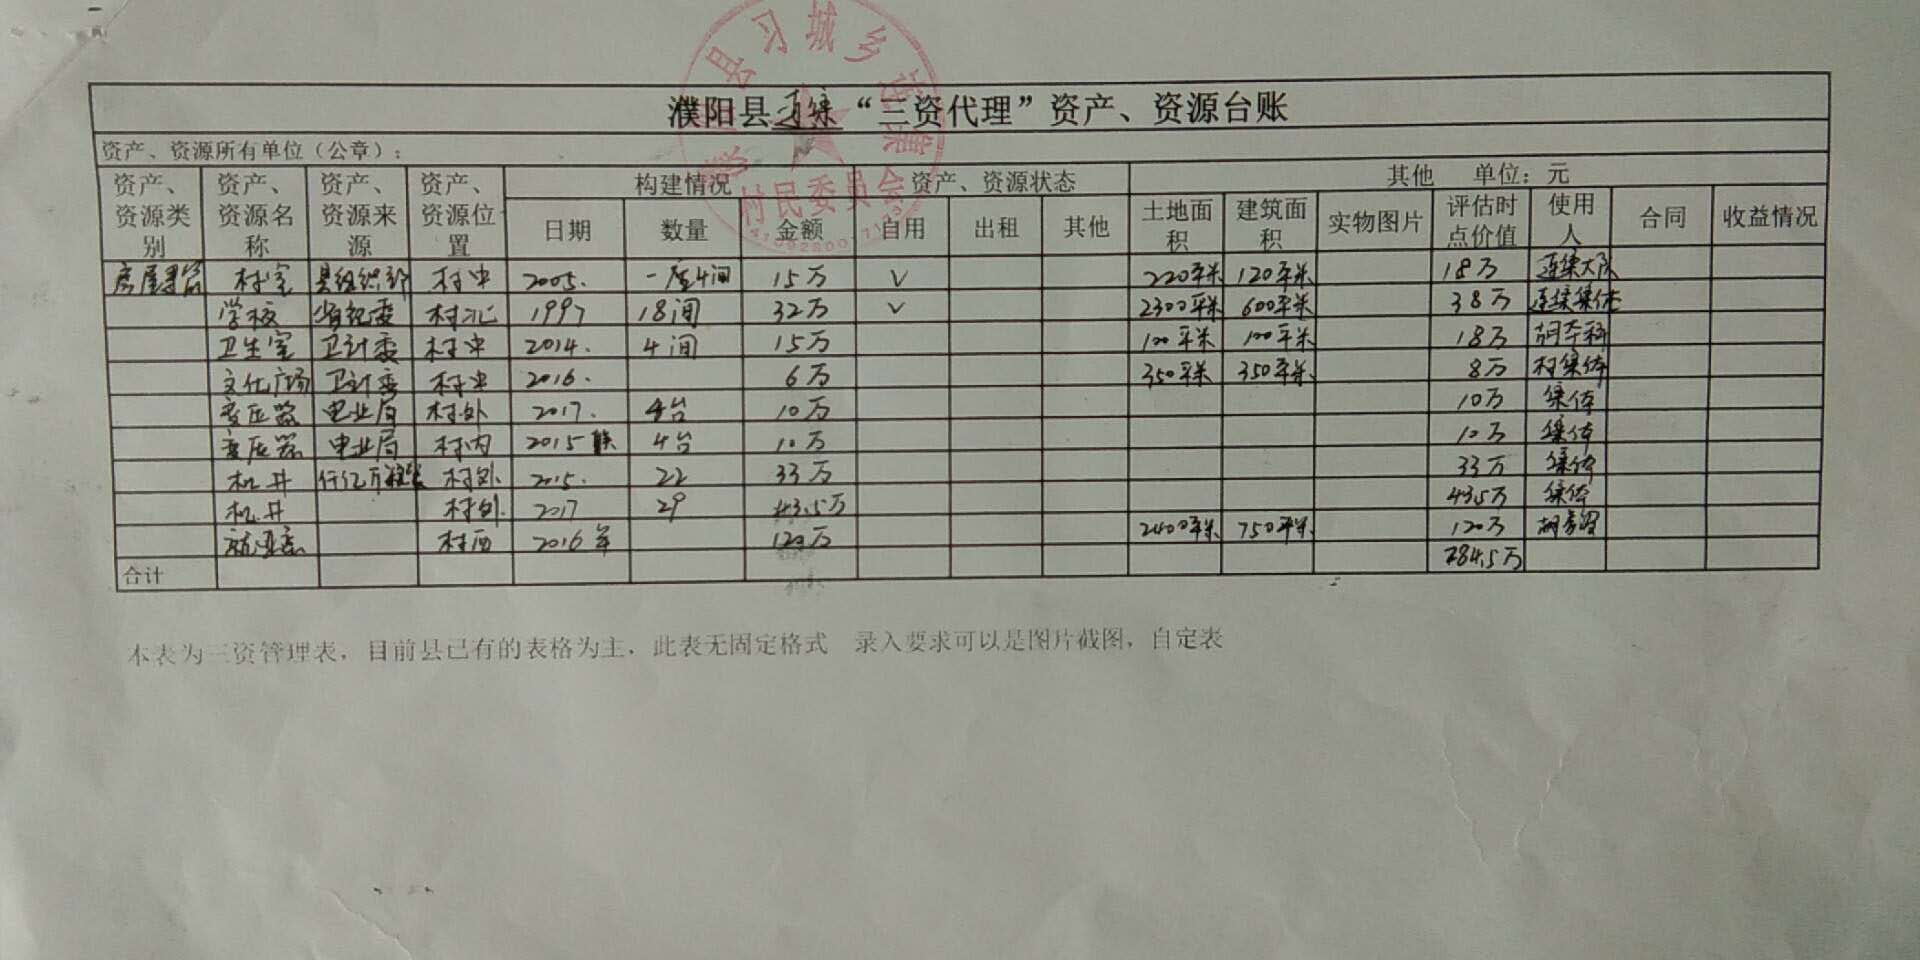 县习城乡连集
村民委员会
濮阳县连集“三资代理”资产、资源台账
资产、资源所有单位（公章）：
资产、资源类别 资产、资源名称 资产、资源来源 资产、资源位置 构建情况 资产、资源状态 其他 单位：元
日期 数量 金额 自用 出租 其他 土地面积 建筑面积 实物图片 评估时点价值 使用人 合同 收益情况
房屋 村室 县组织部 村中 2005. 一座4间 15万 √ 220平米 120平米 18万 连集大队
学校 省纪委 村北 1997 18间 32万 √ 2300平米 600平米 38万 连集集体
卫生室 卫计委 村中 2014. 4间 15万 100平米 100平米 18万
文化广场 卫计委 村中 2016. 6万 350平米 350平米 8万 村集体
变压器 电业局 村外 2017. 4台 10万 10万 集体
变压器 电业局 村内 2015 4台 10万 10万 集体
机井 村外 2015. 22 33万 33万 集体
机井 村外. 2017 29 43.5万 43.5万 集体
村西 2016年 120万 2400平米 750平米 120万
合计 284.5万
本表为三资管理表，目前县已有的表格为主，此表无固定格式 录入要求可以是图片截图，自定表